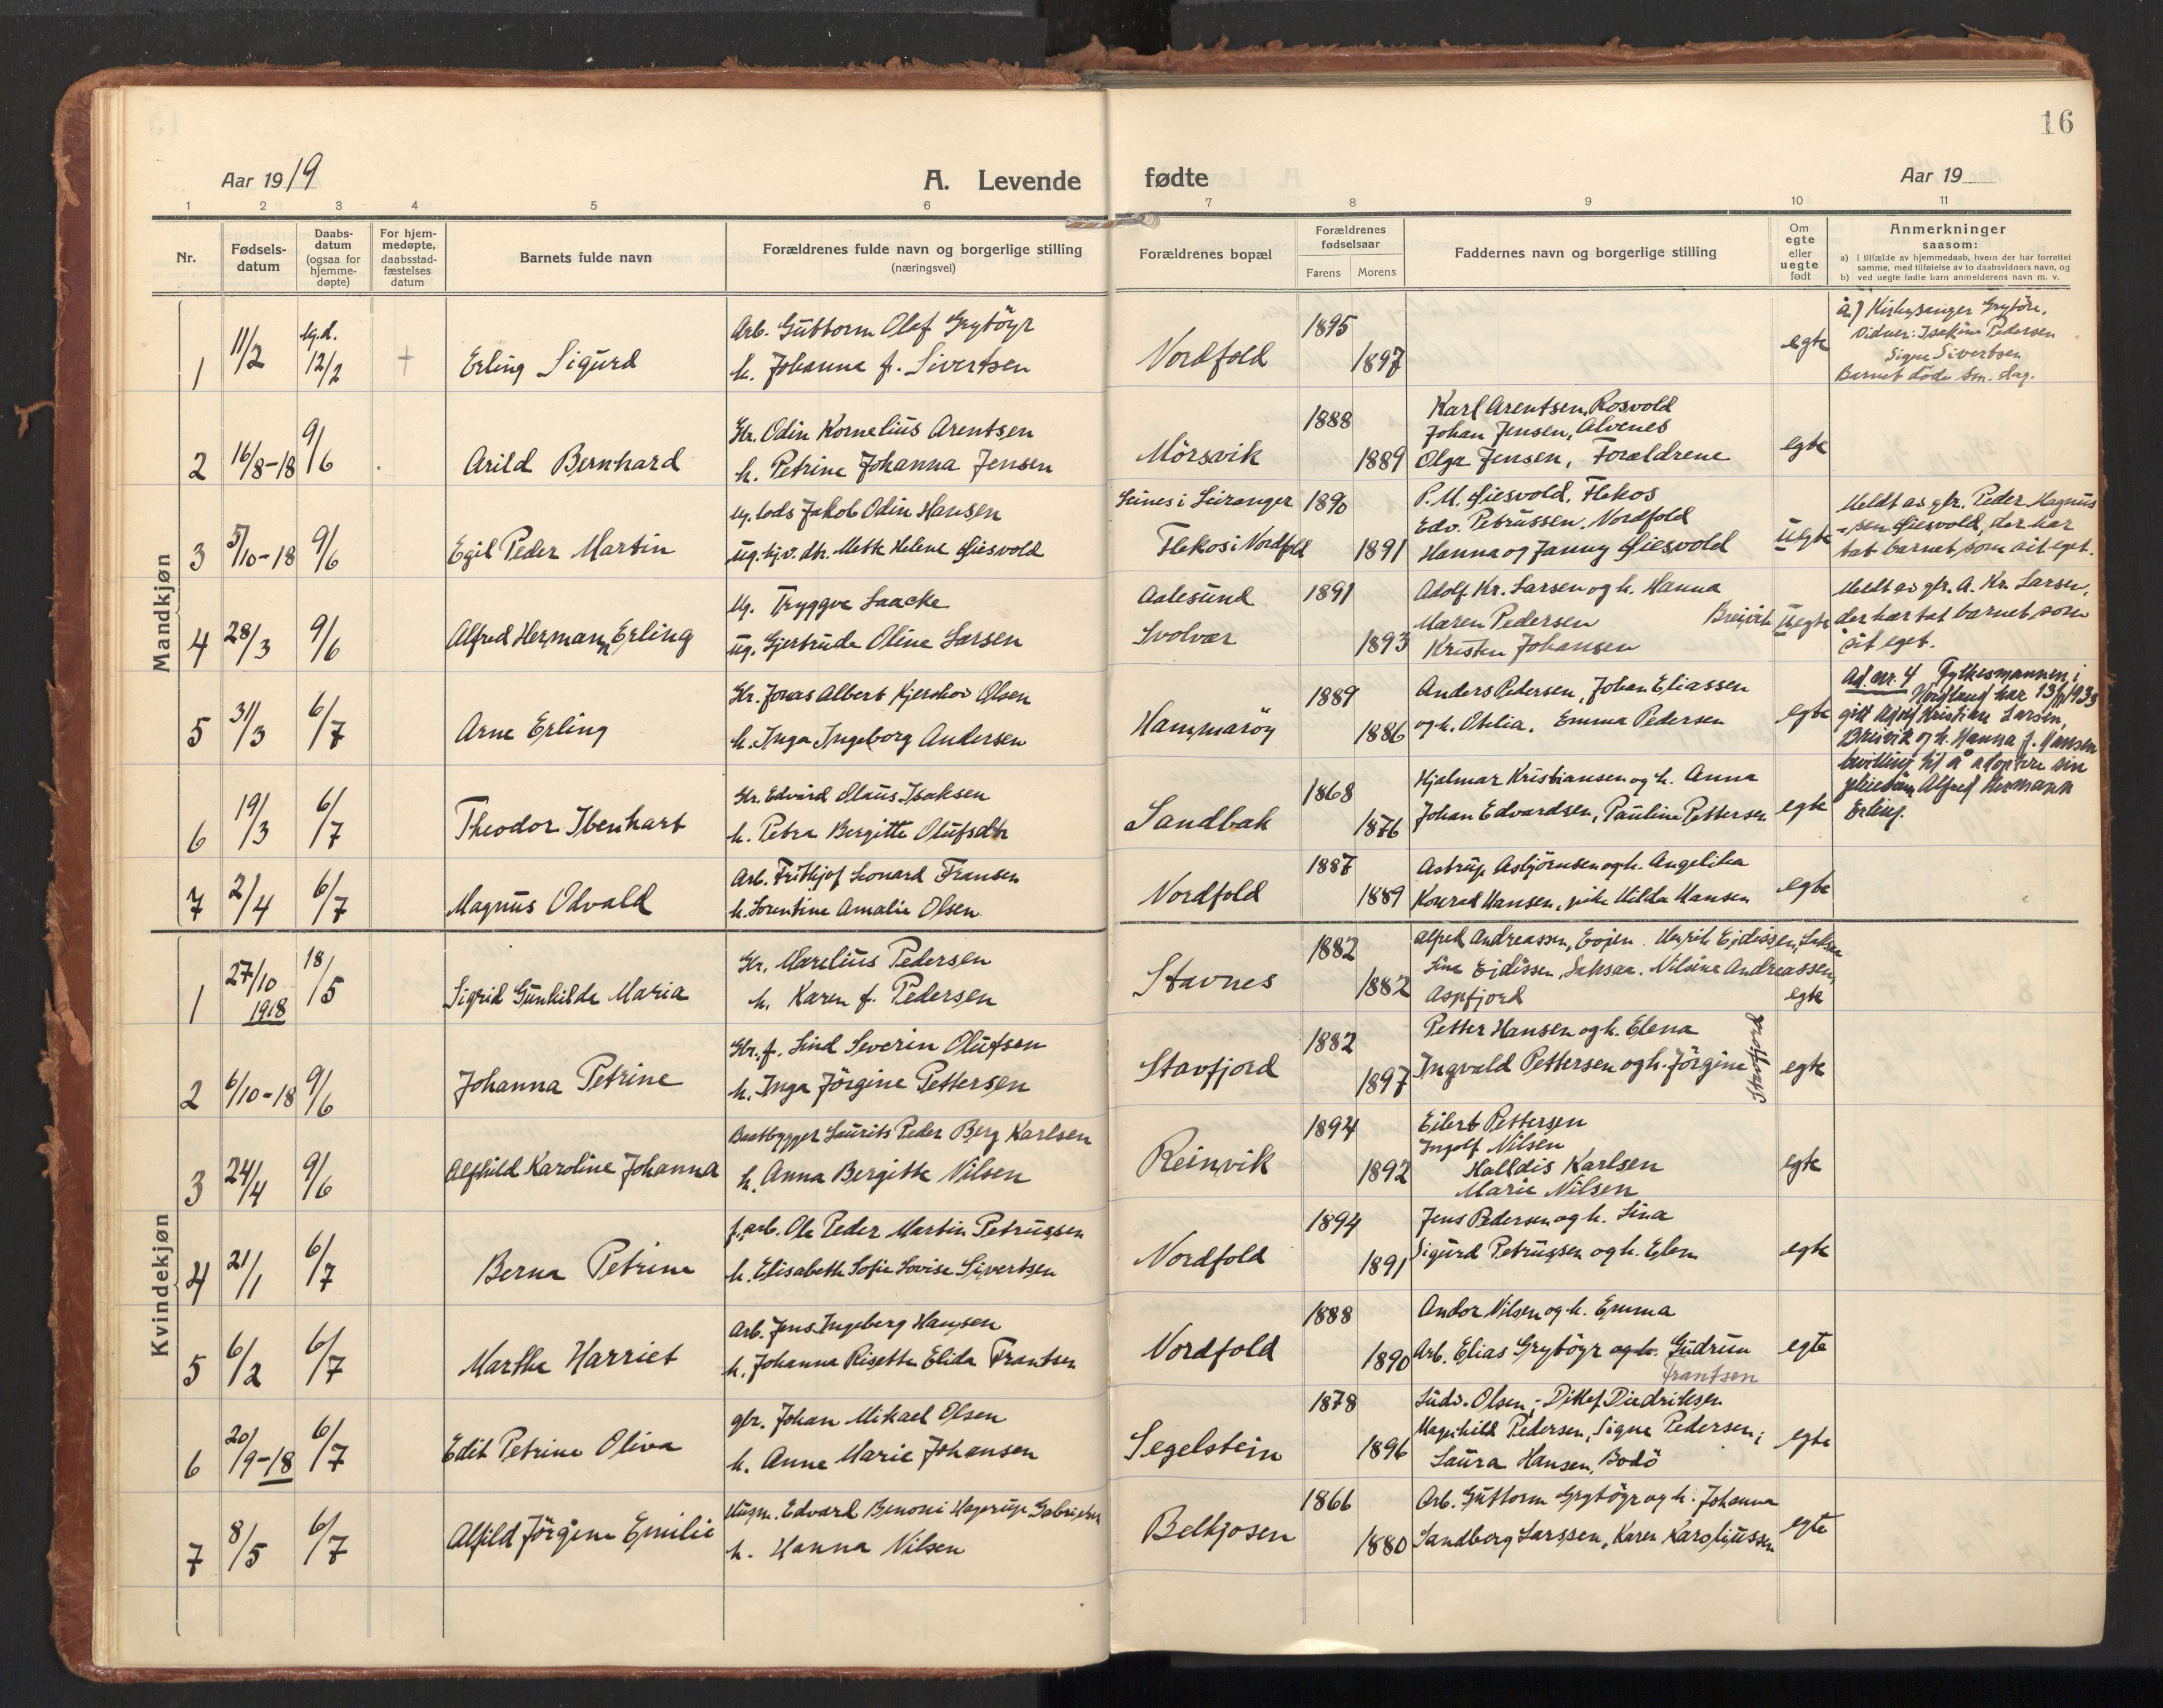 16
Aar 1919
A. Levende fødte
Aar 19
1 2 3 4 5 6 7 8 9 10 11
Nr.
Fødsels-
datum
Daabs-
datum
(ogsaa for
hjemme-
døpte)
For hjem-
medøpte,
daabsstad-
fæstelses
datum
Barnets fulde navn
Forældrenes fulde navn og borgerlige stilling
(næringsvei)
Forældrenes bopæl
Forældrenes
fødselsaar
Farens Morens
Faddernes navn og borgerlige stilling
Om
egte
eller
uegte
født
Anmerkninger
saasom:
a) i tilfælde av hjemmedaab, hvem der har forrettet
samme, med tilføielse av to daabsvidners navn, og
b) ved uegte fødte barn anmelderens navn m. v.
Mandkjøn
1 11/2 hj.d. 12/2 + Erling Sigurd
Arb. Guttorm Olaf Grytöyr
h. Johanna f. Sivertsen
Nordfold 1895 1897 egte
a) Kirkesanger Grytöyr.
Vidner: Isakine Pedersen
Signe Sivertsen
Barnet döde sm. dag.
2 16/8-18 9/6 Arild Bernhard
Gbr. Odin Kornelius Arentsen
h. Petrine Johanna Jensen
Mörsvik 1888 1889
Karl Arentsen, Rosvold
Johan Jensen, Alvenes
Olga Jensen, Forældrene
egte
3 5/10-18 9/6 Egil Peder Martin
Ug. lods Jakob Odin Hansen
ug. hj.v. dtr. Mette Helene Giesvold
Leines i Leiranger
Flekos i Nordfold
1890 1891
P. M. Giesvold, Flekos
Edv. Petrussen, Nordfold
Hanna og Janny Giesvold
uegte
Meldt av gbr. Peder Magnus
-sen Giesvold, der har
tat barnet som sit eget.
4 28/3 9/6 Alfred Hermann Erling
Ug. Tryggve Saacke
ug. Gjertrude Oline Larsen
Aalesund
Svolvær
1891 1893
Adolf Kr. Larsen og h. Hanna
Maren Pedersen Breivik
Kristen Johansen
uegte
Meldt av gbr. A. Kr. Larsen,
der har tat barnet som
sit eget.
5 31/3 6/7 Arne Erling
Gbr. Jonas Albert Kjerskov Olsen
h. Inga Ingeborg Andersen
Hammaröy 1889 1886
Anders Pedersen, Johan Eliassen
og h. Otelia, Emma Pedersen
egte
Ad. nr. 4 Fylkesmannen i
Nordland har
gitt Adolf Kristian Larsen,
Breivik og h. Hanna f. Hansen
bevilling til å adoptere sin
pleiebarn Alfred Hermann
Erling.
6 19/3 6/7 Theodor Ibenhart
Gbr. Edvard Olaus Isaksen
h. Petra Bergitte Olufsdtr
Sandbak 1868 1876
Hjalmar Kristiansen og h. Anna
Johan Edvardsen, Pauline Pettersen
egte
7 2/4 6/7 Magnus Odvald
Arb. Frithjof Leonard Fransen
h. Lorentine Amalie Olsen
Nordfold 1887 1889
Astrup Asbjörnsen og h. Angelika
Konrad Hansen, pike Hilda Hansen
egte
Kvindekjøn
1 27/10 1918 18/5 Sigrid Gunhilde Maria
Gbr. Marelius Pedersen
h. Karen f. Pedersen
Stavnes 1882 1882
Alfred Andreassen, Evjen. Henrik Ejdissen, Laksaa
Lina Ejdissen, Laksaa. Nilsine Andreassen,
Aspfjord
egte
2 6/10-18 9/6 Johanna Petrine
Gbr. f. Lind Severin Olufsen
h. Inga Jörgine Pettersen
Stavfjord 1882 1897
Petter Hansen og h. Elena
Ingvald Pettersen og h. Jörgine
Stavfjord
egte
3 24/4 9/6 Alfhild Karoline Johanna
Baatbygger Laurits Peder Berg Karlsen
h. Anna Bergitte Nilsen
Reinvik 1894 1892
Eilert Pettersen
Ingolf Nilsen
Halldis Karlsen
Marie Nilsen
egte
4 21/1 6/7 Berna Petrine
f. arb. Ole Peder Martin Petrussen
h. Elisabeth Sofie Lovise Sivertsen
Nordfold 1894 1891
Jens Pedersen og h. Lina
Sigurd Petrussen og h. Elen
egte
5 6/2 6/7 Martha Harriet
Arb. Jens Ingeberg Hansen
h. Johanna Risette Elida Frantsen
Nordfold 1888 1890
Andor Nilsen og h. Emma
Arb. Elias Grytöyr og h. Gudrun
Frantsen
egte
6 20/9-18 6/7 Edit Petrine Oliva
gbr. Johan Mikael Olsen
h. Anne Marie Johansen
Segelstein 1878 1896
Ludv. Olsen; Ditlef Diedriksen
Magnhild Pedersen, Signe Pedersen;
Laura Hansen, Bodö
egte
7 8/5 6/7 Alfild Jörgine Emilie
Husm. Edvard Benoni Hagerup Gabrielsen
h. Hanna Nilsen
Belkjosen 1866 1880
Arb. Guttorm Grytöyr og h. Johanna
Sandberg Larssen, Karen Karoliussen
egte